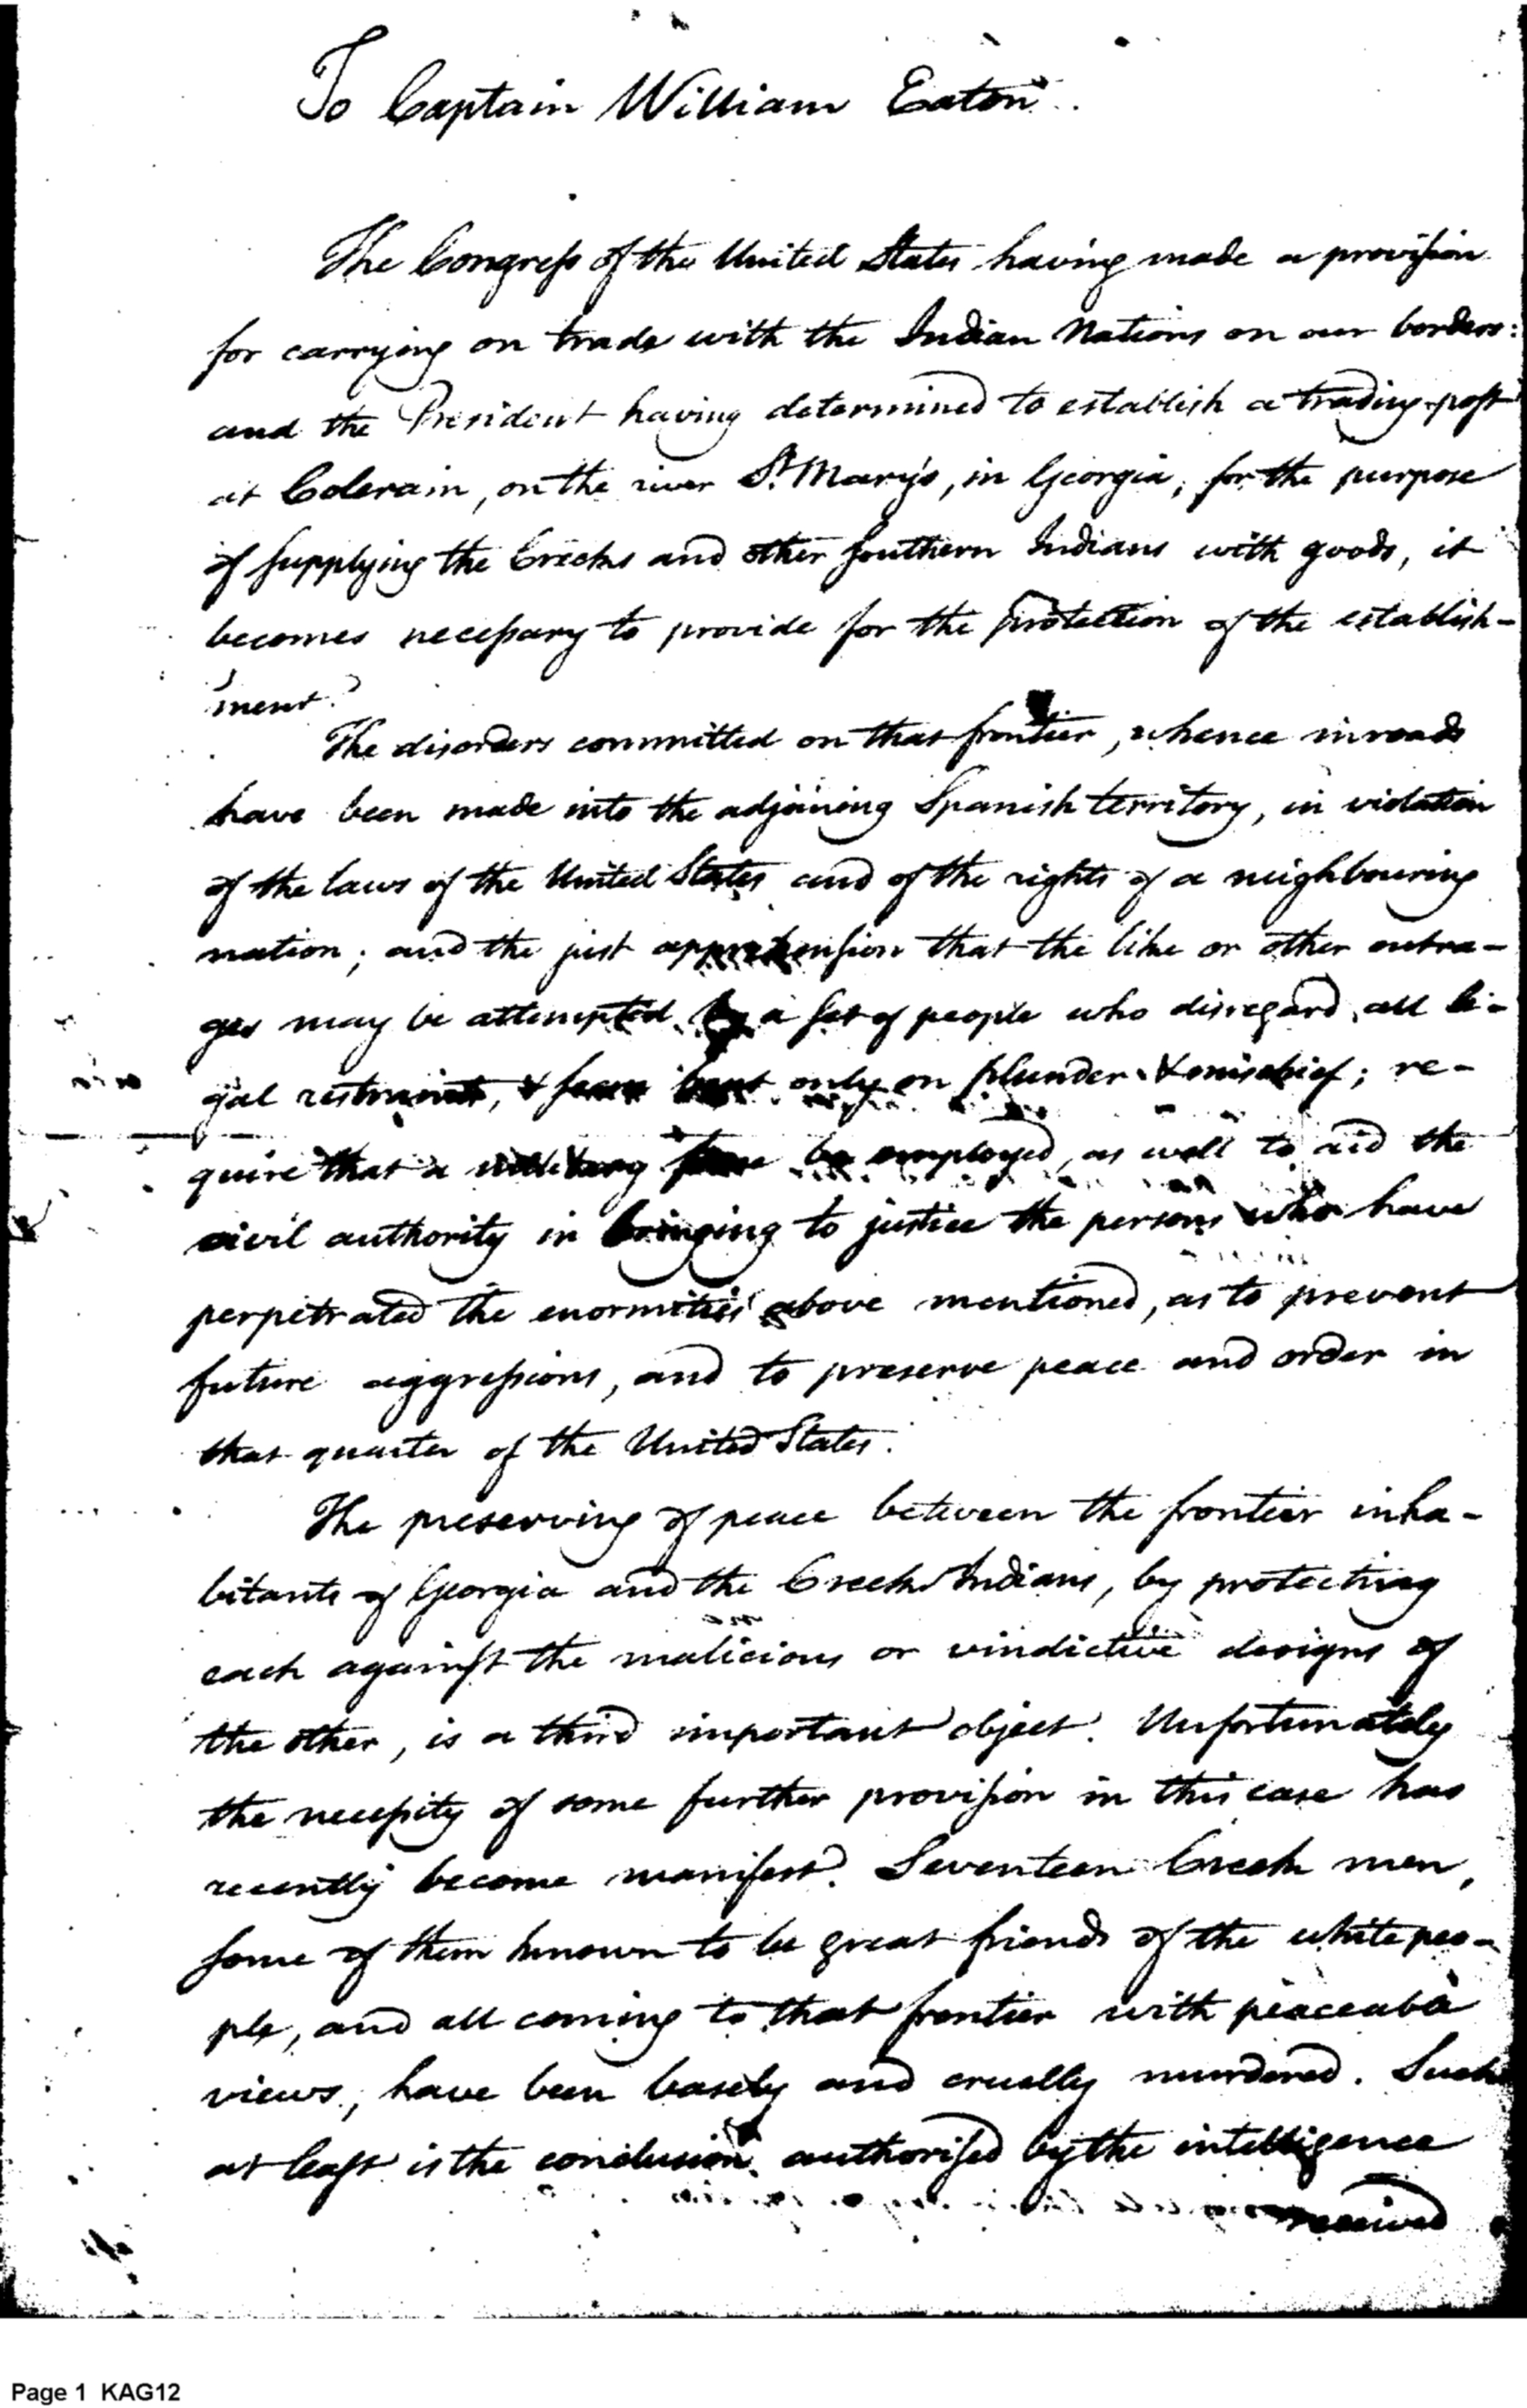 To Captain William Eaton.
The Congress of the United States having made a provision
for carrying on trade with the Indian Nations on our borders:
and the President having determined to establish a trading-post
at Colerain, on the river St. Mary's, in Georgia, for the purpose
of supplying the Creeks and other southern Indians with goods, it
becomes necessary to provide for the protection of the establish-
ment.
The disorders committed on that frontier, whence inroads
have been made into the adjoining Spanish territory, in violation
of the laws of the United States and of the rights of a neighbouring
nation; and the just apprehension that the like or other outra-
ges may be attempted by a set of people who disregard all le-
gal restraints, & seem bent only on plunder & mischief; re-
quire that a military force be employed, as well to aid the
civil authority in bringing to justice the persons who have
perpetrated the enormities above mentioned, as to prevent
future aggressions, and to preserve peace and order in
that quarter of the United States.
The preserving of peace between the frontier inha-
bitants of Georgia and the Creek Indians, by protecting
each against the malicious or vindictive designs of
the other, is a third important object. Unfortunately
the necessity of some further provision in this case has
recently become manifest. Seventeen Creek men,
some of them known to be great friends of the white peo-
ple, and all coming to that frontier with peaceable
views, have been basely and cruelly murdered. Such
at least is the conclusion authorised by the intelligence
received
Page 1 KAG12